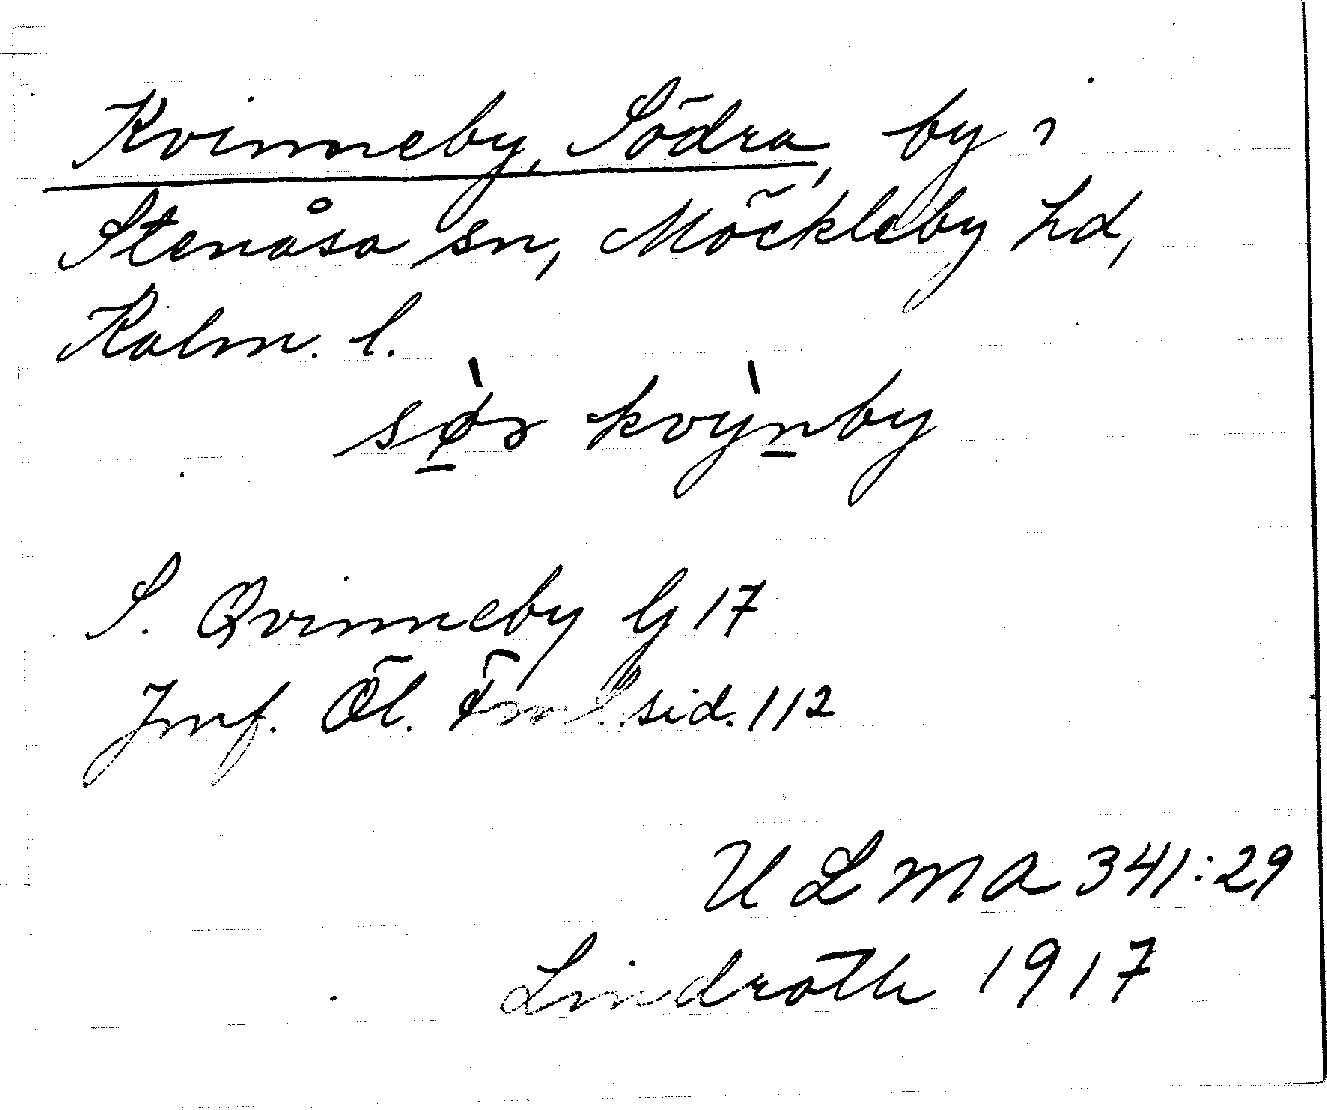 Kvinneby, Södra, by i
Stenåsa sn, Möckleby hd,
Kalm. l.
sø̀r kvỳnby
S. Qvinneby Gj 17
Jmf. Öl. Fml sid. 112
ULMA 341:29
Lindroth 1917